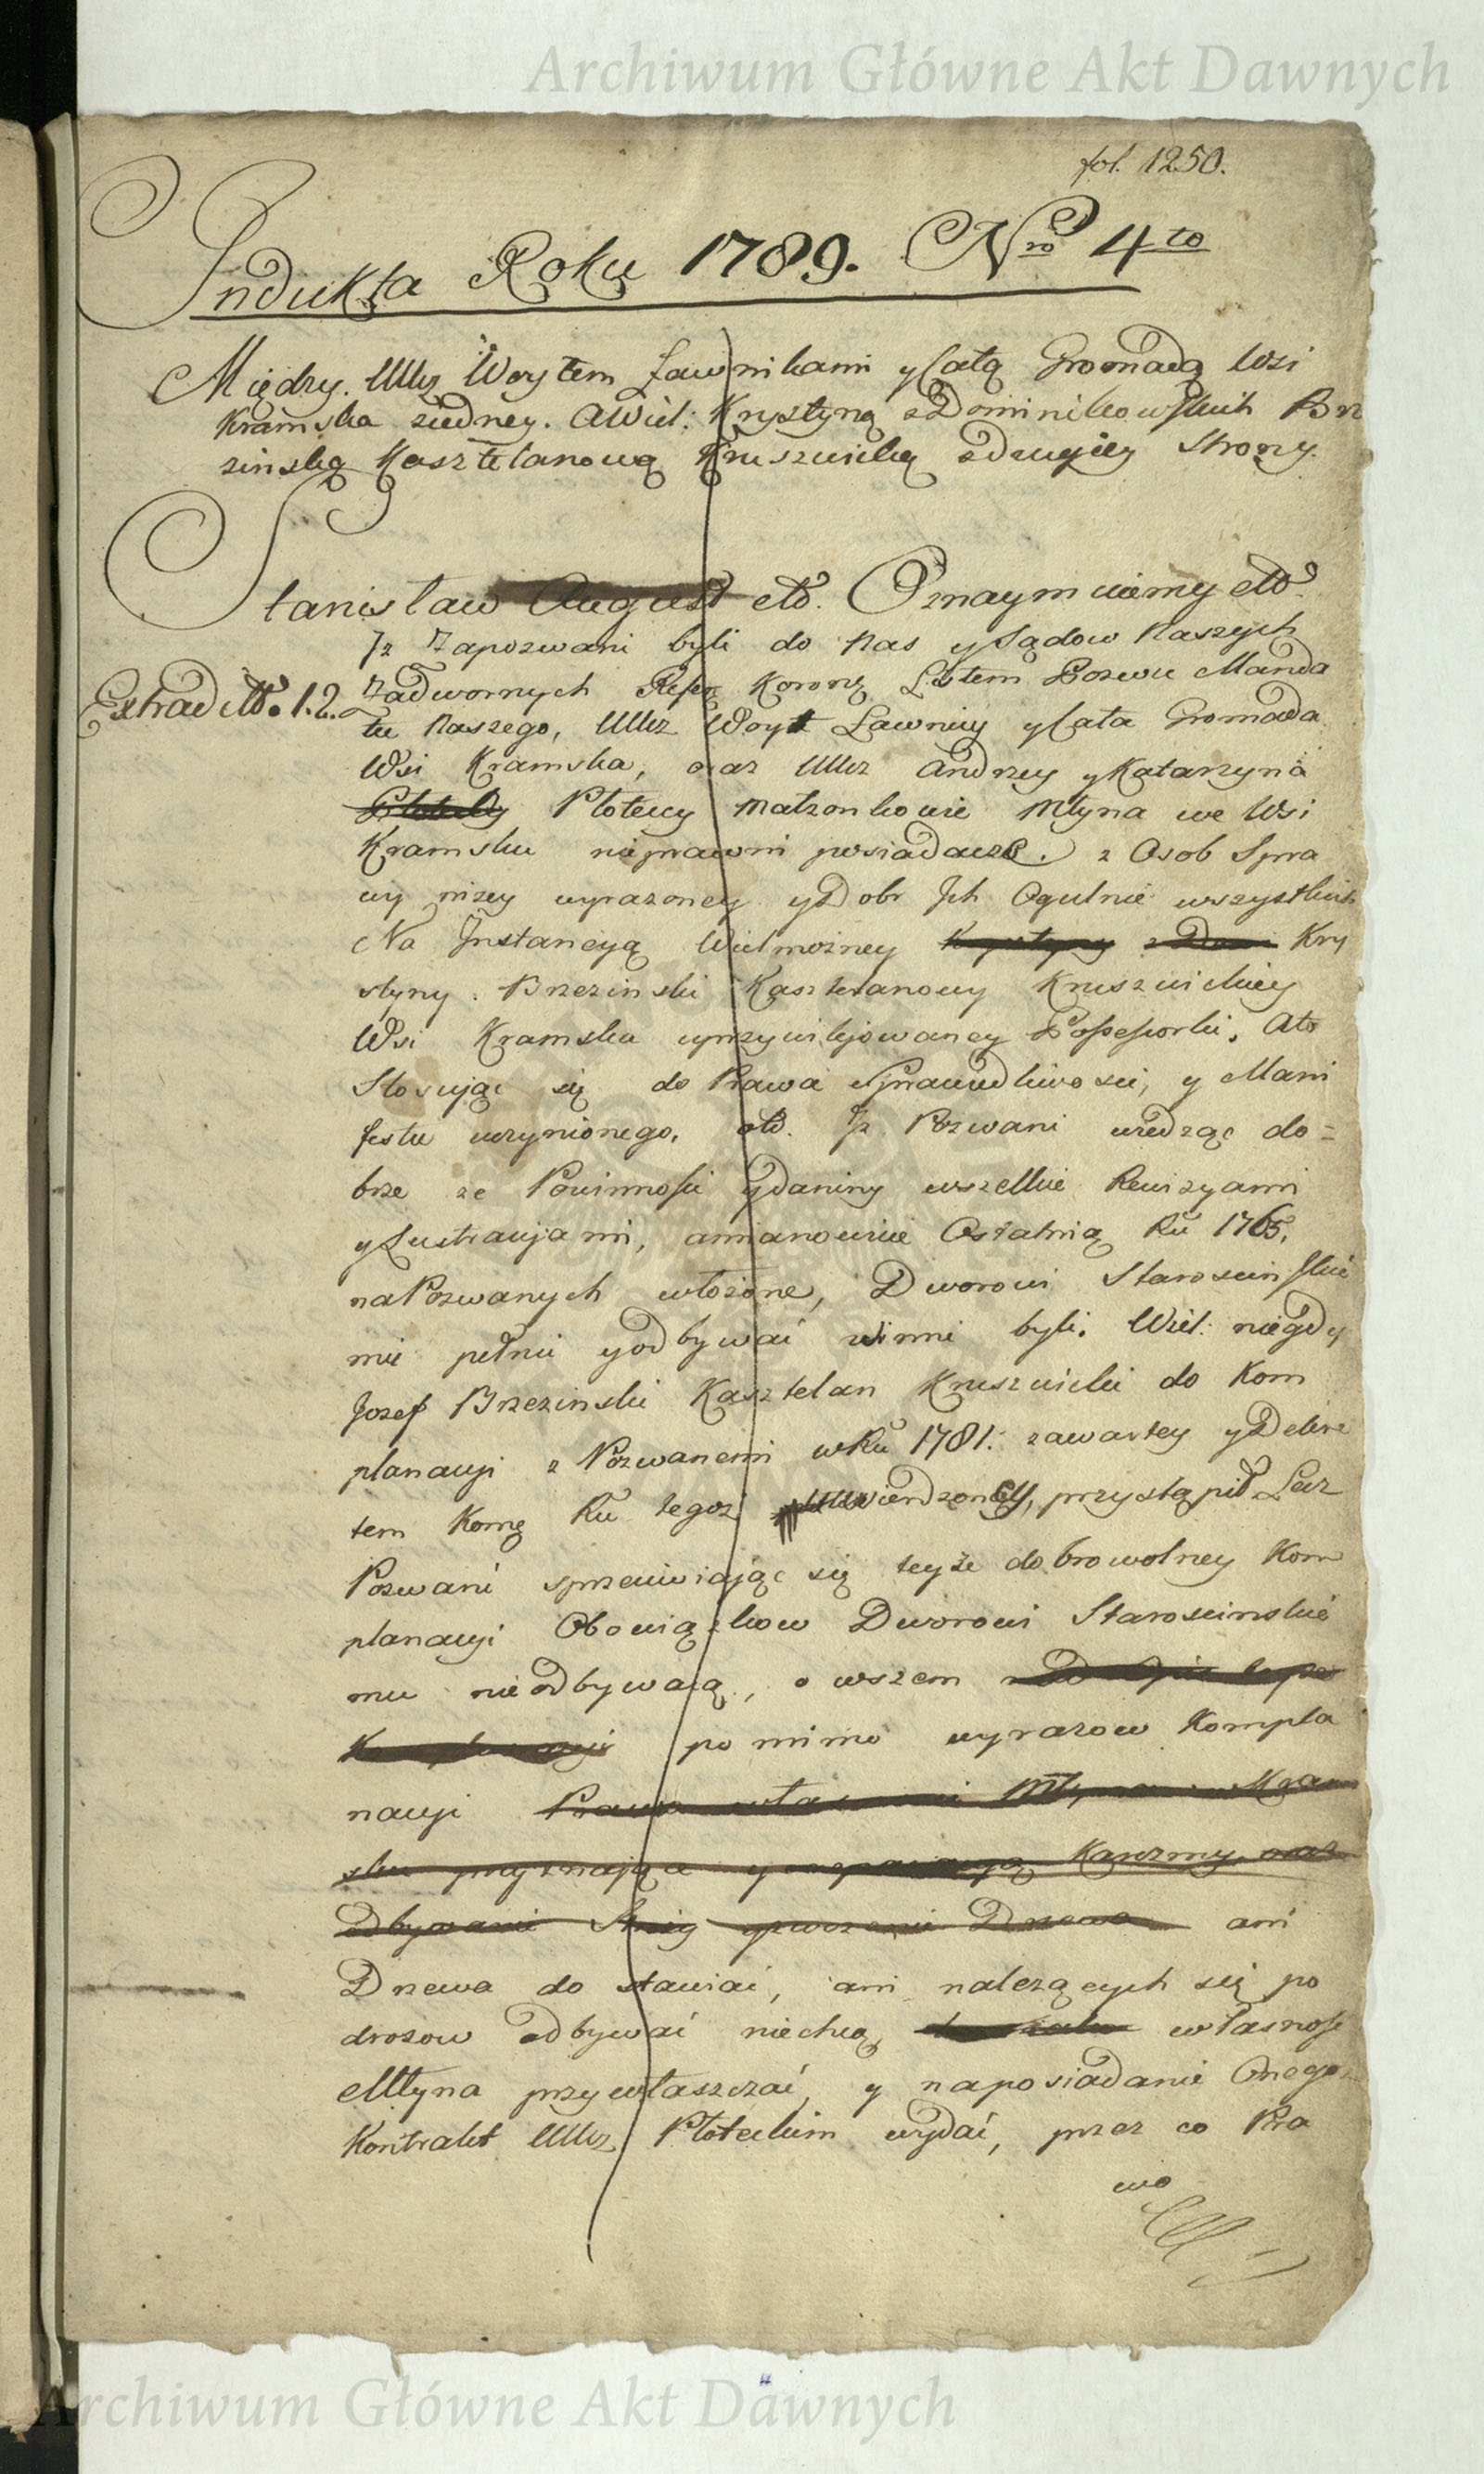 Archiwum Główne Akt Dawnych
fol. 1250.
Indukta Roku 1789. Nro 4to
Między. Uttcz Woytem Ławnikami y całą Gromadą Wsi
Kramska ziedney. A Wiel: Krystyną z Dominikowskich Brze
zinską Kasztelanową Kruszwicką z drugiey Strony.
Stanisław August etc. Oznaymuiemy etc.
Jż Zapozwani byli do Nas y Sądow Naszych
Extrad etc. 1.2. Zadwornych Refer Koronn Listem Pozwu Manda
tu Naszego, Uttcz Woyt Ławnicy y cała Gromada
Wsi Kramska, oraz Uttcz Andrzey y Katarzyna
Płoteccy Małzonkowie Młyna we Wsi
Kramsku nieprawni posiadacze. z Osob Spra
wy nizey wyrazoney y Dobr Jch Ogulnie wszystkich
Na Jnstancyą Wielmozney Krystyny z Dom Kry
styny Brzezinski Kasztelanowy Kruszwickiey
Wsi Kramska uprzywilejowaney Possessorki, Ato
Stosując się do Prawa Sprawiedliwosci, y Mani
festu uczynionego, etc. Jż Pozwani wiedząc do=
brze ze Powinnosci y daniny wszelkie Rewizyami
y Lustracyjami, a mianowicie Ostatnią Ru 1765,
na Pozwanych włożone, Dworowi Staroscinskie
mu pełnić y odbywać winni byli. Wiel: niegdy
Jozef Brzezinski Kasztelan Kruszwicki do Kom
planacyi z Pozwanemi w Ru 1781. zawartey y Dekre
tem Komę Ru tegoż utwierdzoney, przystąpił Lecz
Pozwani sprzeciwiając się teyże dobrowolney Kom
planacyi Obowiązkow Dworowi Staroscinskie
mu nieodbywaią, owszem
pomimo wyrazow Kompla
nacyi Prawo własnosci Młyna w Kram
sku przyznające y Karczmy oraz
Odbywanie Drzewa ani
Drzewa dostawiać, ani nalezących się po
drozow odbywać niechcą, własnosc
Młyna przywłaszczać, y naposiadanie Onego
Kontrakt Uttcz Płoteckim wydać, przez co Pra
wo
Archiwum Główne Akt Dawnych